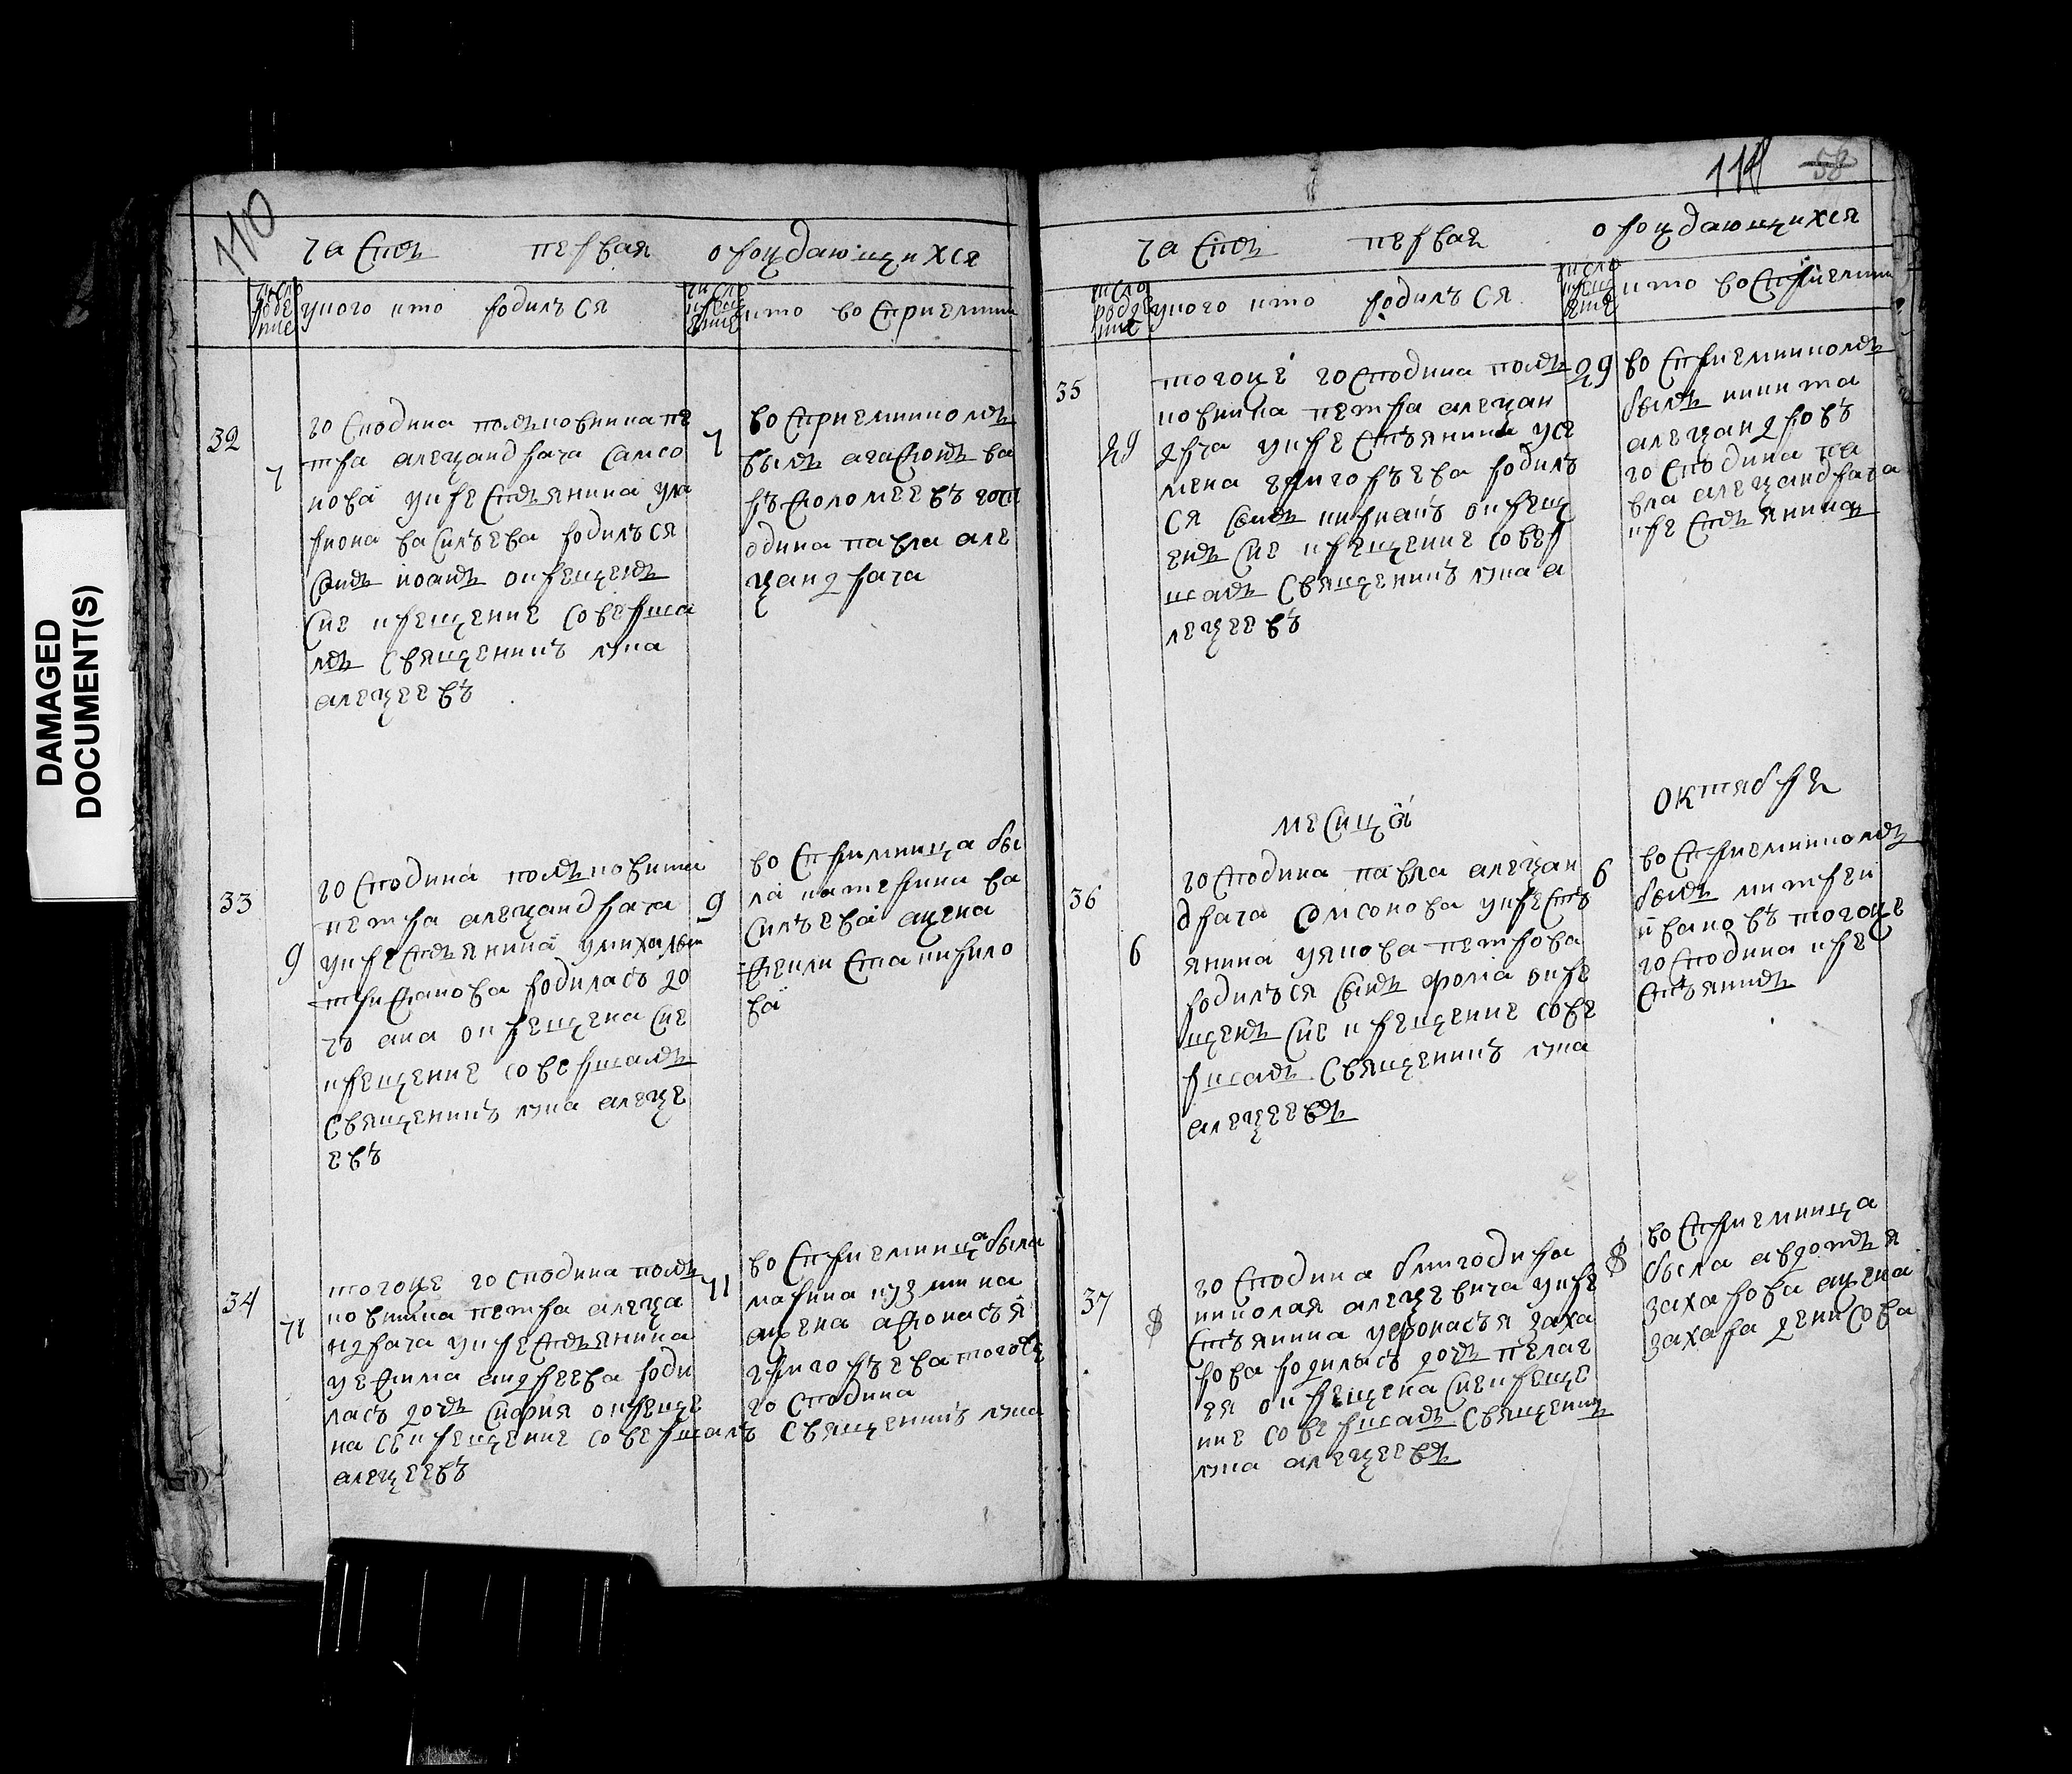 DAMAGED
DOCUMENT(S)
110
часть первая о рождающихся
число рожде ние
у кого кто родилъся
число креще ние
кто восприемни
32
7
господина полковника пе
тра александрача самсо
нова у крестьянина ула
риона василъева родилъся
сынъ иоанъ окрещенъ
сие крещение соверша
лъ священникъ лука
алеѯеевъ
7
восприемникомъ
былъ агафонъ ва
рфоломеевъ госп
одина павла але
ѯандрача
33
9
господина полковника
петра алеѯандрача
у крестьянина у михаила
трифанова родиласъ до
чъ ана окрещена сие
крещение совершалъ
священникъ лука алеѯе
евъ
9
восприемница бы
ла катерина ва
силъева жена
фелиста кирило
ва
34
11
тогоже господина полъ
ковника петра алеѯа
ндрача у крестьянина
у ефима андреева роди
ласъ дочь софия окреще
на се крещение совершалъ священникъ лука
алеѯеевъ
11
восприемница была
марина кузмина
жена афонасъя
григоръева тогожъ
господина
111 58
часть первая о рождающихся
число рожде ние
у кого кто родилъ ся
число креще ение
кто восприемни
35
29
тогоже господина полъ
ковника петра алеѯан
дрча у крестъянина у се
мена григоръева родилъ
ся сынъ кириакъ окрещ
енъ сие крещение совер
шалъ священникъ лука а
леѯеевъ
29
восприемникомъ
былъ никита
алеѯандровъ
господина па
вла алеѯандрача
крестьянинъ
месица октебря
36
6
господина павла алеѯан
драча самсонова у крестъ
янина у якова петрова
родилъся сынъ фома окре
щенъ сие крещение сове
ршалъ священникъ лука
алеѯеевъ
6
восприемникомъ
былъ митрей
ивановъ тогоже
господина кре
стъянинъ
37
8
господина бригодира
николая алеѯевича у кре
стъянина у афонасъя заха
рова родиласъ дочь пелаг
ея окрещена сие креще
ние совершалъ священикъ
лука алеѯеевъ
8
восприемница
была авдотья
захарова жена
захара денисова